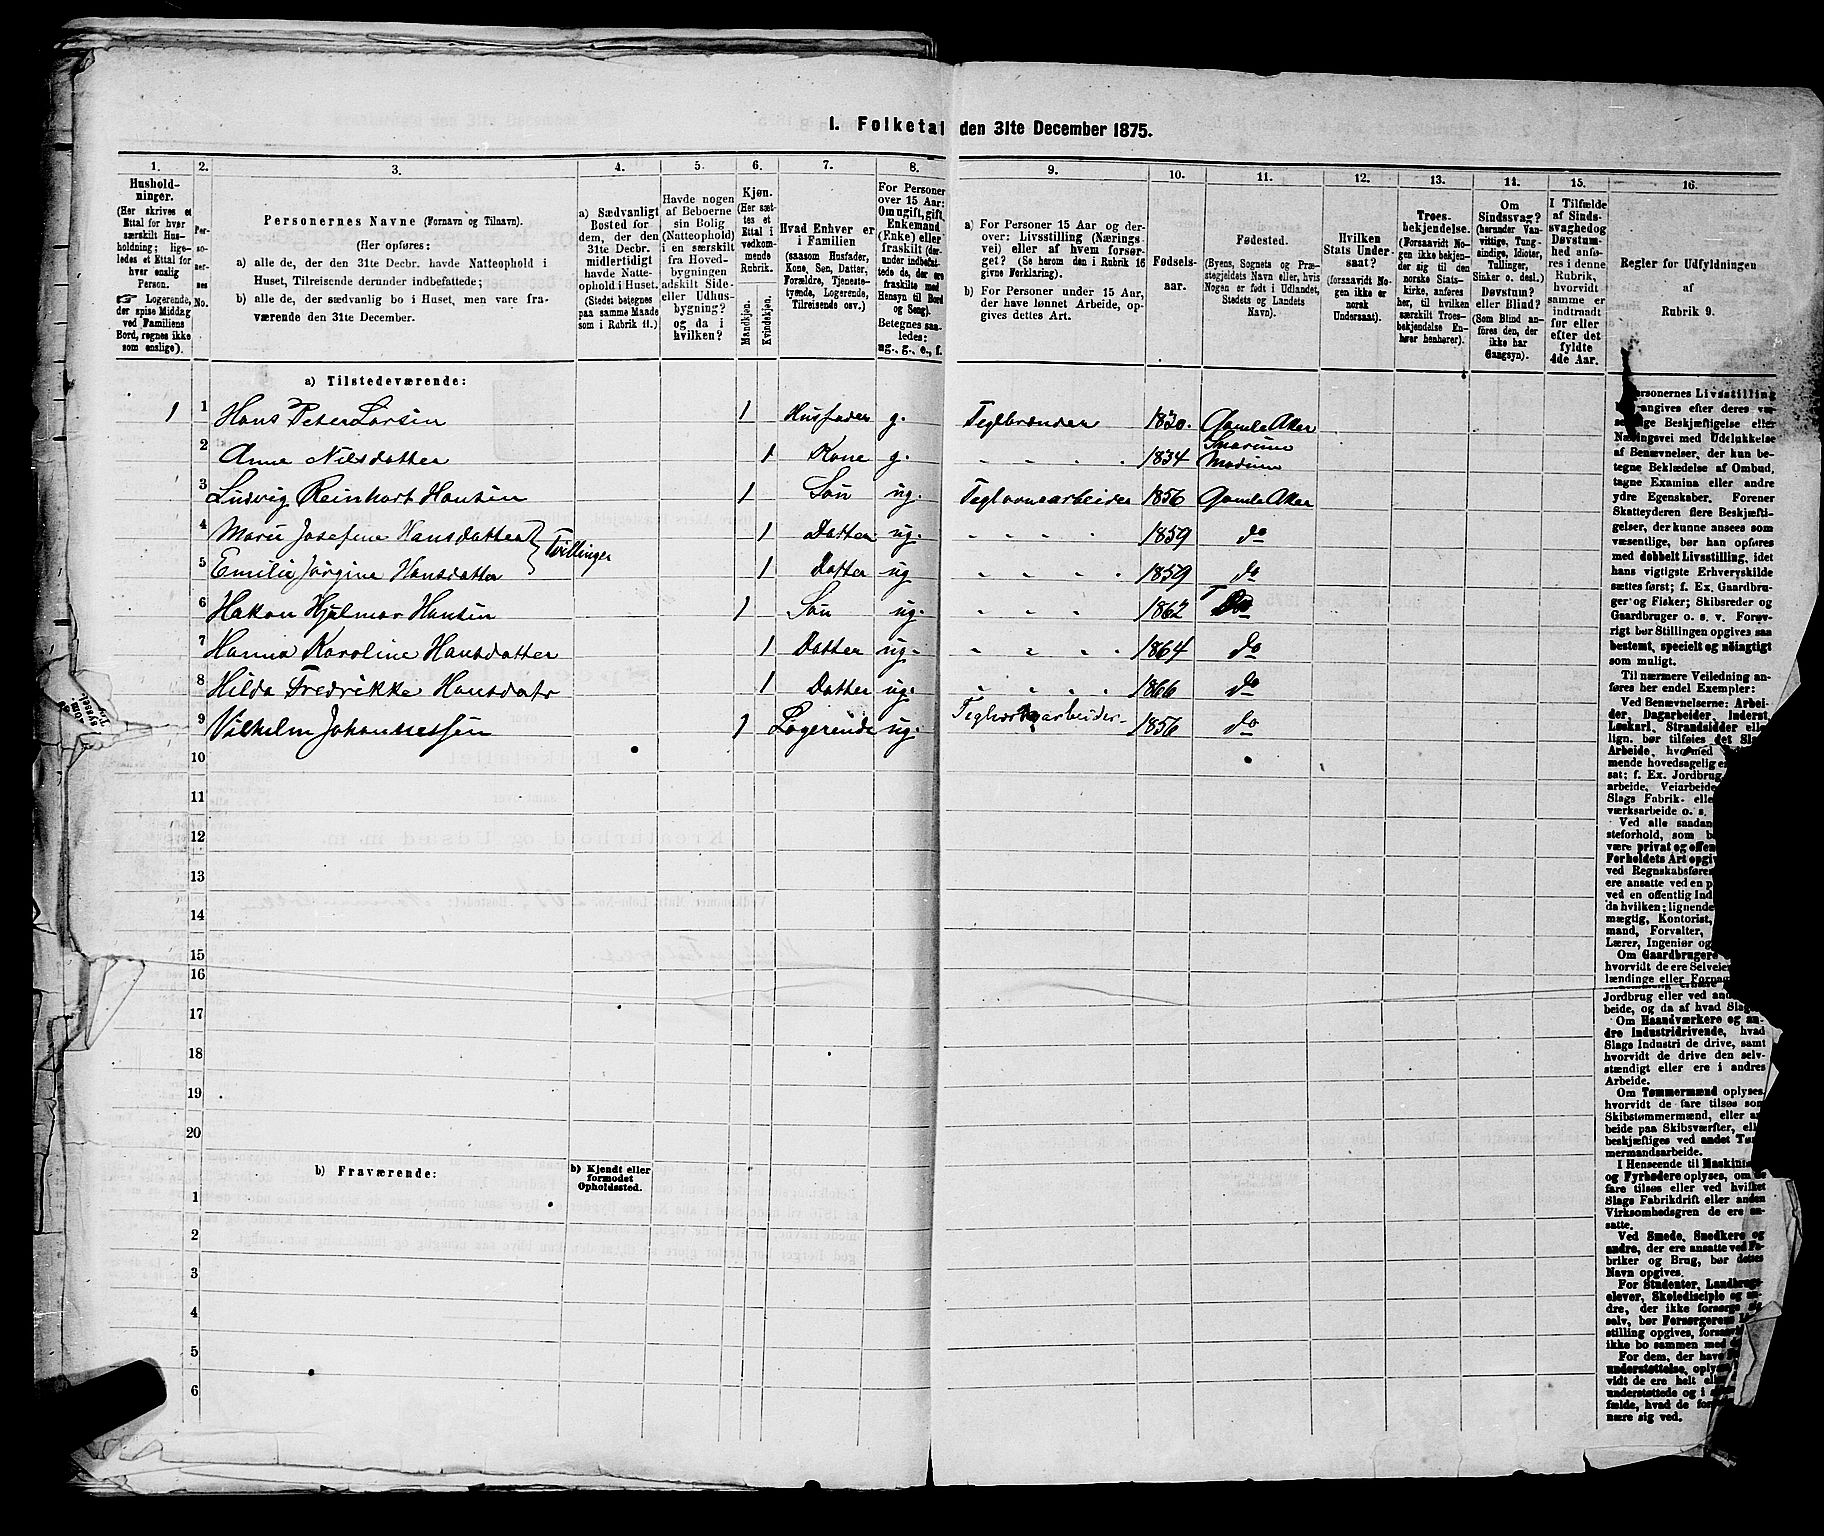 I. Folketal den 31te December 1875.
1. 2. 3. 4. 5. 6. 7. 8. 9. 10. 11. 12. 13. 14. 15. 16.
Hushold-
ninger.
(Her skrives et
Ettal for hver
særskilt Hus-
holdning; lige-
ledes et Ettal for
hver enslig
Person.
☞ Logerende,
der spise Middag
ved Familiens
Bord, regnes ikke
som enslige).
Per-
so-
ner-
nes
No.
Personernes Navne (Fornavn og Tilnavn).
(Her opføres:
a) alle de, der den 31te Decbr. havde Natteophold i
Huset, Tilreisende derunder indbefattede;
b) alle de, der sædvanlig bo i Huset, men vare fra-
værende den 31te December.
a) Sædvanligt
Bosted for
dem, der den
31te Decbr.
midlertidigt
havde Natte-
ophold i Huset.
(Stedet betegnes
paa samme Maade
som i Rubrik 11.)
Havde nogen
af Beboerne
sin Bolig
(Natteophold)
i en særskilt
fra Hoved-
bygningen
adskilt Side-
eller Udhus-
bygning?
og da i
hvilken?
Kjøn.
(Her sæt-
tes et
Ettal i
vedkom-
mende
Rubrik.
Mandkjøn.
Kvindekjøn.
Hvad Enhver er
i Familien
(saasom Husfader,
Kone, Søn, Datter,
Forældre, Tjeneste-
tyende, Logerende,
Tilreisende osv.)
For Personer
over 15 Aar:
Om ugift, gift,
Enkemand
(Enke) eller
fraskilt (der-
under indbefat-
tede de, der ere
fraskilte med
Hensyn til Bord
og Seng).
Betegnes saa-
ledes:
ug., g., e., f.
a) For Personer 15 Aar og der-
over: Livsstilling (Nærings-
vei) eller af hvem forsør-
get? (Se herom den i Rubrik 16
givne Forklaring).
b) For Personer under 15 Aar,
der have lønnet Arbeide, op-
gives dettes Art.
Fødsels-
aar.
Fødested.
(Byens, Sognets og Præ-
stegjeldets Navn eller, hvis
Nogen er født i Udlandet,
Stedets og Landets
Navn).
Hvilken
Stats Under-
saat?
(forsaavidt No-
gen ikke er
norsk
Undersaat).
Troes-
bekjendelse.
(Forsaavidt No-
gen ikke bekjen-
der sig til den
norske Stats-
kirke, anføres
her, til hvilken
særskilt Troes-
bekjendelse En-
hver henhører).
Om
Sindssvag?
(herunder Van-
vittige, Tung-
sindige, Idioter,
Tullinger,
Sinker o. desl.)
Døvstum?
eller Blind?
(Som Blind an-
føres den, der
ikke har
Gangsyn).
I Tilfælde
af Sinds-
svaghed og
Døvstum-
hed anfø-
res i denne
Rubrik,
hvorvidt
samme er
indtraadt
før eller
efter det
fyldte
4de Aar.
Regler for Udfyldningen
af
Rubrik 9.
a) Tilstedeværende:
1 1 Hans Peter Larsen 1 Husfader g. Teglbrænder 1830. Gamle Aker
2 Anne Nilsdatter 1 Kone g. " " " " 1834 Snarum Modum
3 Ludvig Reinhart Hansen 1 Søn ug. Teglovnsarbeider 1856 Gamle Aker
4 Marie Josefine Hansdatter } Tvillinger 1 Datter ug. " " " " 1859 do
5 Emilie Jørgine Hansdatter 1 Datter ug " " " " 1859 do
6 Hakon Hjalmar Hansen 1 Søn ug. " " " " 1862 Do
7 Hanna Karoline Hansdatter 1 Datter ug. " " " " 1864 do
8 Hilda Fredrikke Hansdatr 1 Datter ug. " " " " 1866 do
9 Vilhelm Johannessen 1 Logerende ug. Teglværksarbeider 1856 do
10
11
12
13
14
15
16
17
18
19
20
b) Fraværende:
b) Kjendt eller
formodet
Opholdssted.
1
2
3
4
5
6
Personernes Livsstilling
angives efter deres væ-
sentlige Beskjæftigelse eller
Næringsvei med Udelukkelse
af Benævnelser, der kun be-
tegne Beklædelse af Ombud,
tagne Examina eller andre
ydre Egenskaber. Forener
Skatteyderen flere Beskjæfti-
gelser, der kunne ansees som
væsentlige, bør han opføres
med dobbelt Livsstilling, idet
hans vigtigste Erhverskilde
sættes først; f. Ex. Gaardbru-
ger og Fisker; Skibsreder og
Gaardbruger o. s. v. Forøv-
rigt bør Stillingen opgives saa
bestemt, specielt og nøiagtigt
som muligt.
Til nærmere Veiledning an-
føres her endel Exempler:
Ved Benævnelserne: Arbei-
der, Dagarbeider, Inderst,
Løskarl, Strandsidder eller
lign. bør tilføies det Slags
Arbeide, hvormed
mende hovedsagelig er
sat; f. Ex. Jordbrug
arbeide, Veiarbeide
Slags Fabrik- elle
værksarbeide o. s.
Ved alle saadan
steforhold, som b
være privat og offen
Forholdets Art opgiv
ved Regnskabsføres
ere ansatte ved en p
ved en offentlig Ind
da hvilken; lignende
mægtig, Kontorist,
mand, Forvalter,
Lærer, Ingeniør og
Om Gaardbrugere
hvorvidt de ere Selveier
lændinge eller Forpag
Jordbrug eller ved and
beide, og da af hvad Slag
Om Haandværkere og an-
dre Industridrivende, hvad
Slags Industri de drive, samt
hvorvidt de drive den selv-
stændigt eller ere i andres
Arbeide.
Om Tømmermænd oplyses,
hvorvidt de fare tilsøs som
Skibstømmermænd, eller ar-
beide paa Skibsværfter, ell
beskjæftiges ved andet Tøm
mermandsarbeide.
I Henseende til Maskinis
og Fyrbødere oplyses, om de
fare tilsøs eller ved hvilket
Slags Fabrikdrift eller anden
Virksomhedsgren de ere an-
satte.
Ved Smede, Snedkere og
andre, der ere ansatte ved Fa-
briker og Brug, bør dettes
Navn opgives.
For Studenter, Landbrugs-
elever, Skoledisciple og an-
dre, der ikke forsørge sig
selv, bør Forsørgerens Livs-
stilling opgives, forsaavidt
ikke bo sammen med
For dem, der have
understøttelse, oplyses
vidt de ere helt elle
understøttede og i
fælde, hvad de for
nære sig ved.